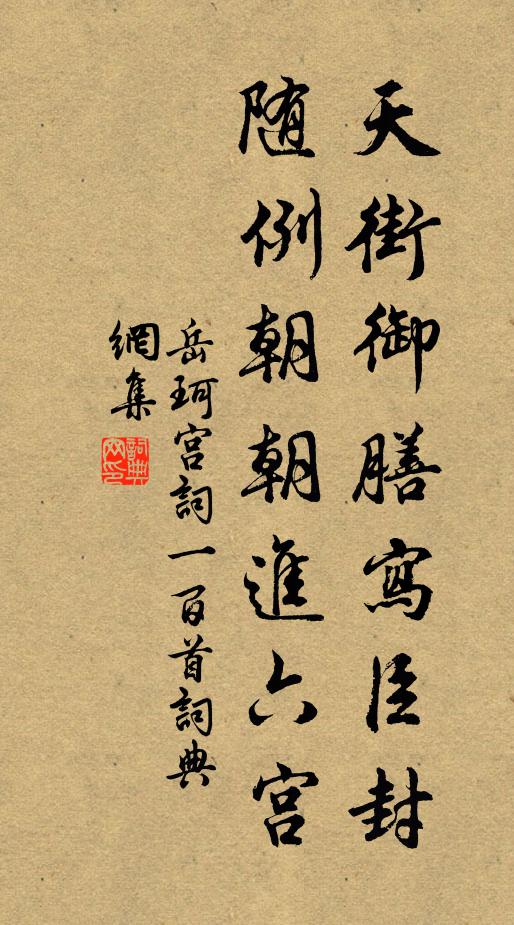 天街御膳寫臣封
随例朝朝進六宮
岳珂宮詞一百首詞典
網集
詞典网印